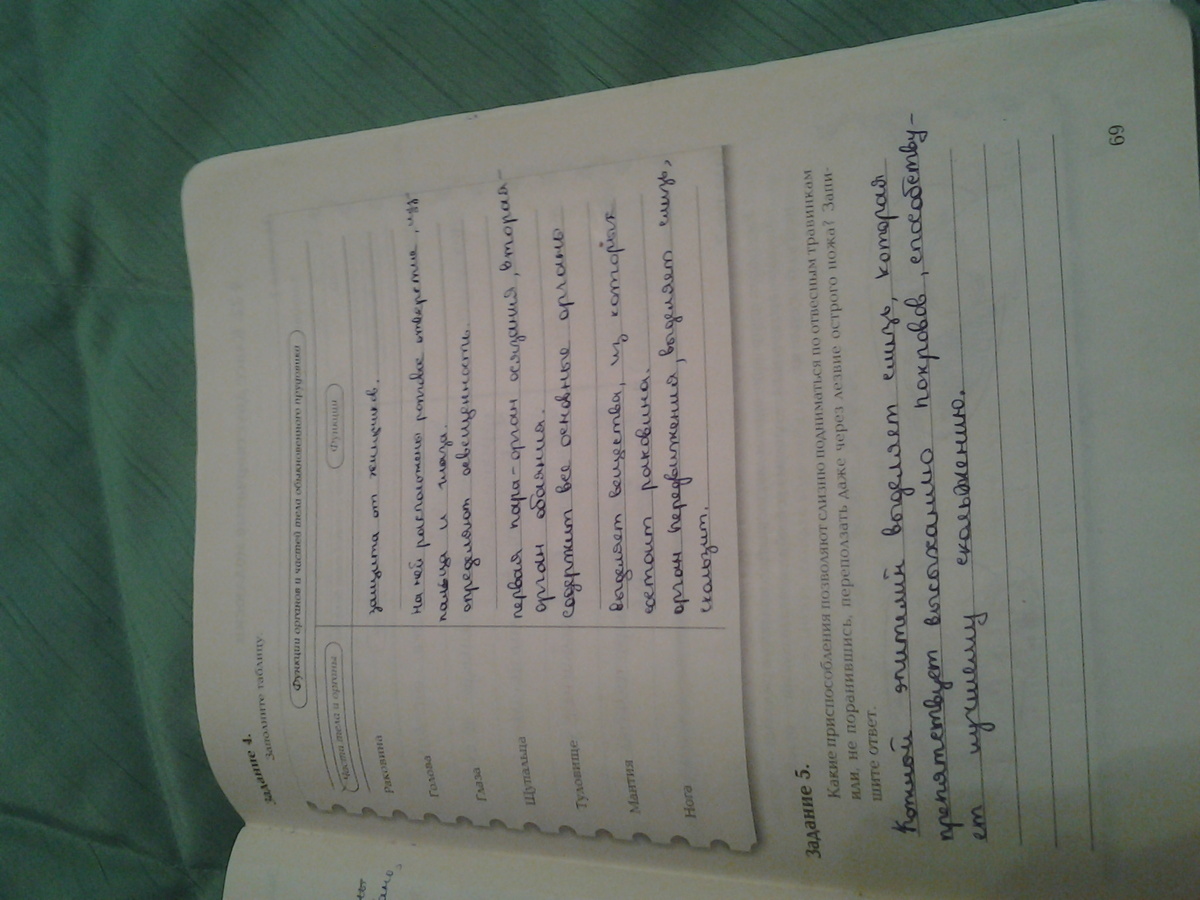 Задание 4.
Заполните таблицу.
Функции органов и частей тела обыкновенного прудовика
Части тела и органы
Функции
Раковина
защита от хищников.
Голова
на ней расположено ротовое отверстие,
пальца и глаза.
Глаза
определяют освещенность.
Щупальца
первая пара-орган осязания, вторая-
орган обоняния.
Туловище
содержит все основные органы
Мантия
выделяет вещества, из которых
состоит раковина.
Нога
орган передвижения, выделяет слизь,
скользит.
Задание 5.
Какие приспособления позволяют слизню подниматься по отвесным травинкам
или, не поранившись, переползать даже через лезвие острого ножа? Запи-
шите ответ.
Кожный эпителий выделяет слизь, которая
препятствует высыханию покровов, способству-
ет лучшему скольжению.
69